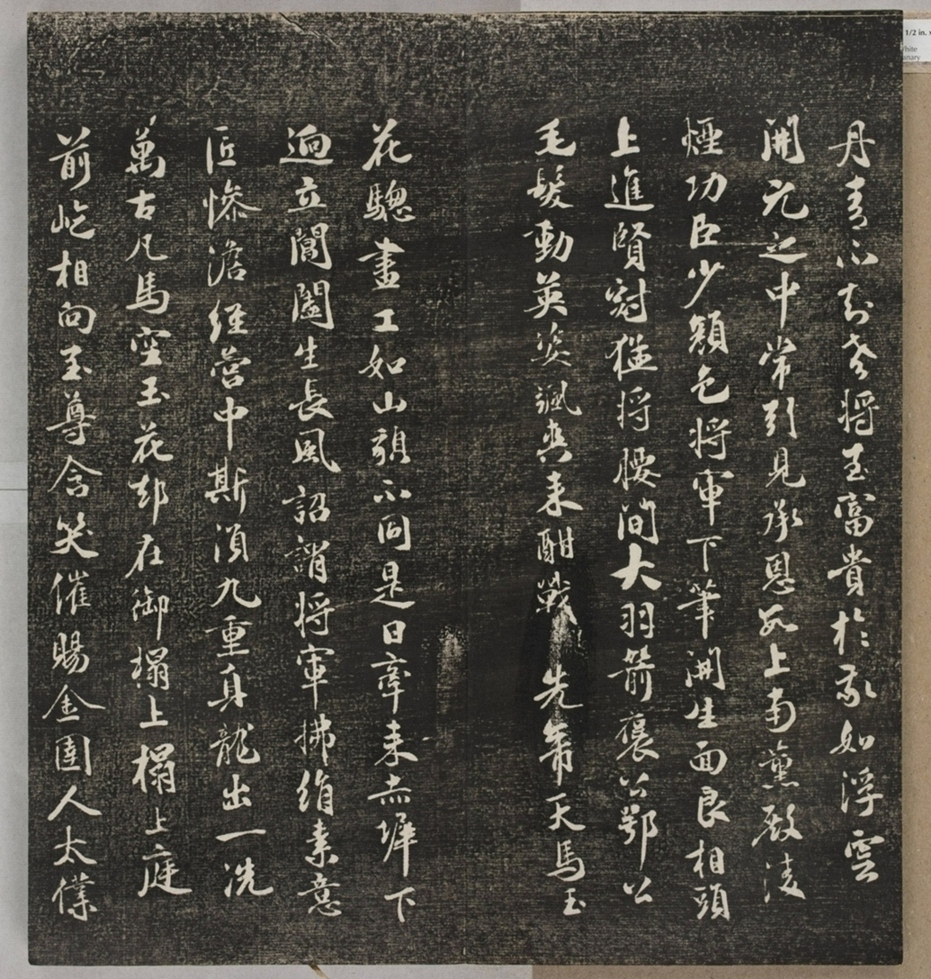 丹青不知老將至富貴於我如浮雲
開元之中常引見承恩數上南薰殿凌
煙功臣少顏色將軍下筆開生面良相頭
上進賢冠猛將腰間大羽箭褒公鄂公
毛髮動英姿颯爽來酣戰先帝天馬玉
花驄畫工如山貌不同是日牽來赤墀下
迥立閶闔生長風詔謂將軍拂絹素意
匠慘澹經營中斯須九重真龍出一洗
萬古凡馬空玉花却在御榻上榻上庭
前屹相向至尊含笑催賜金圉人太僕
1/2 in. x